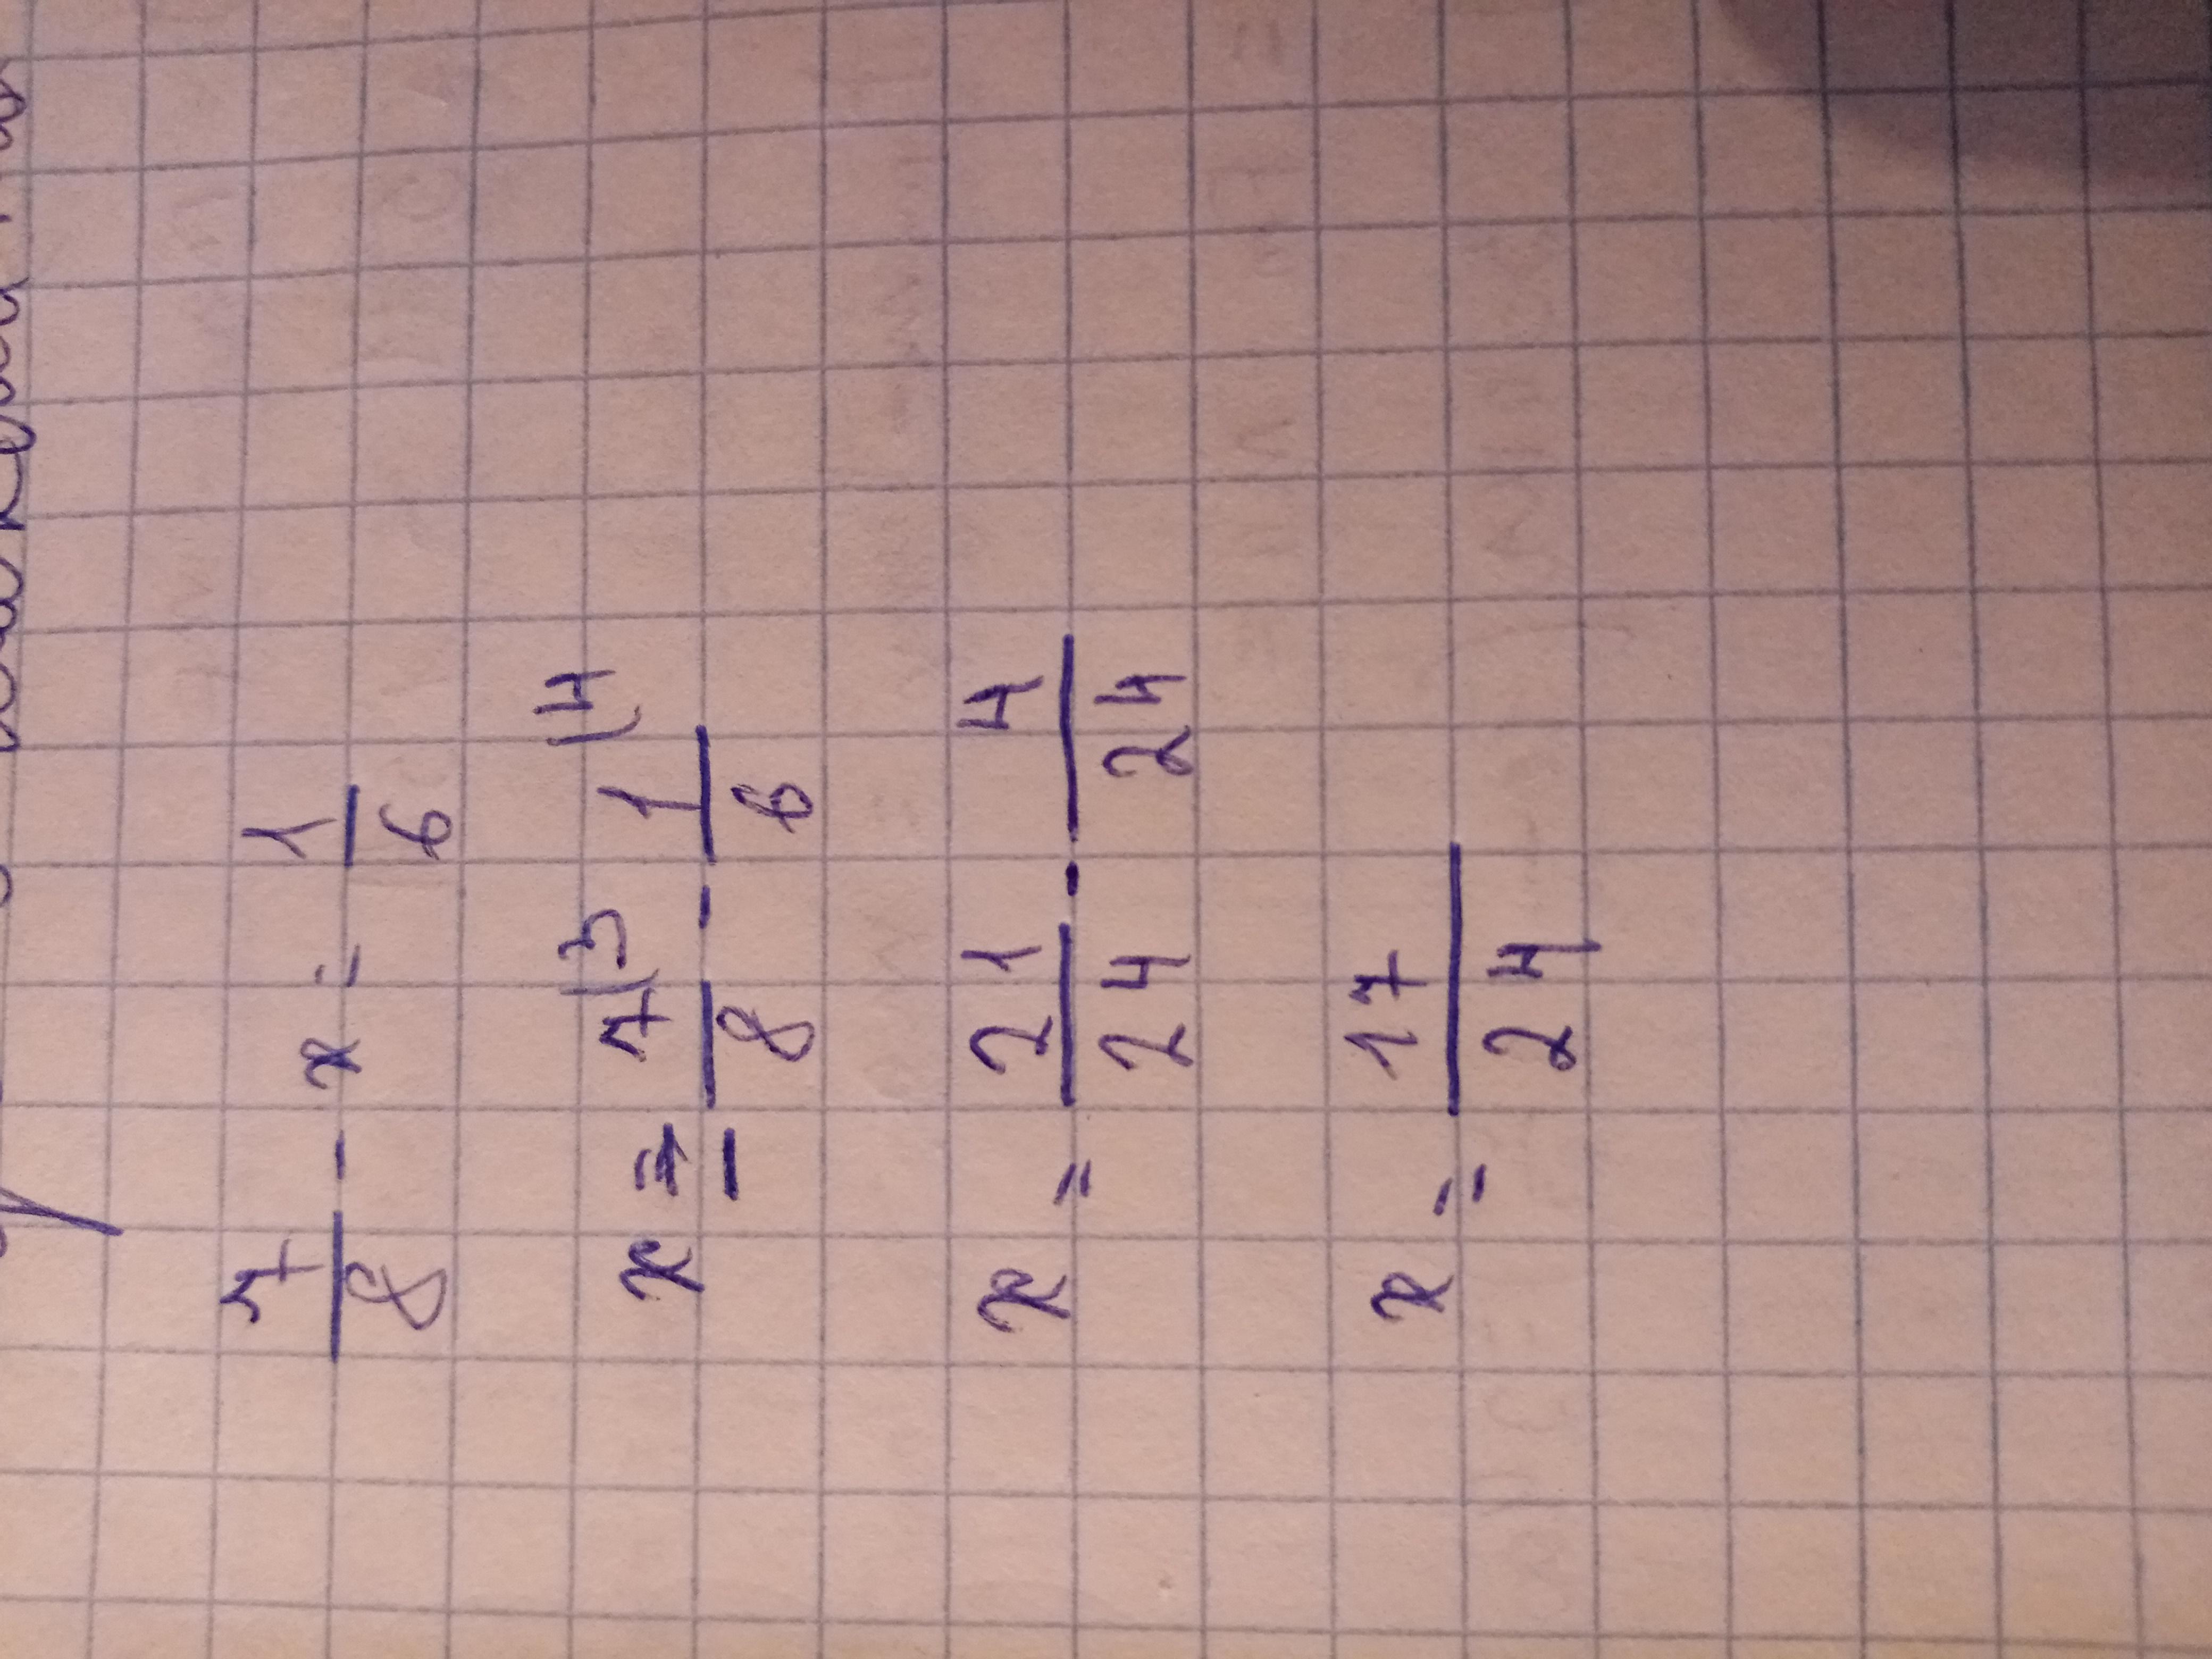 7/8 - x = 1/6
x = 7/8 (3 - 1/6 (4
x = 21/24 - 4/24
x = 17/24